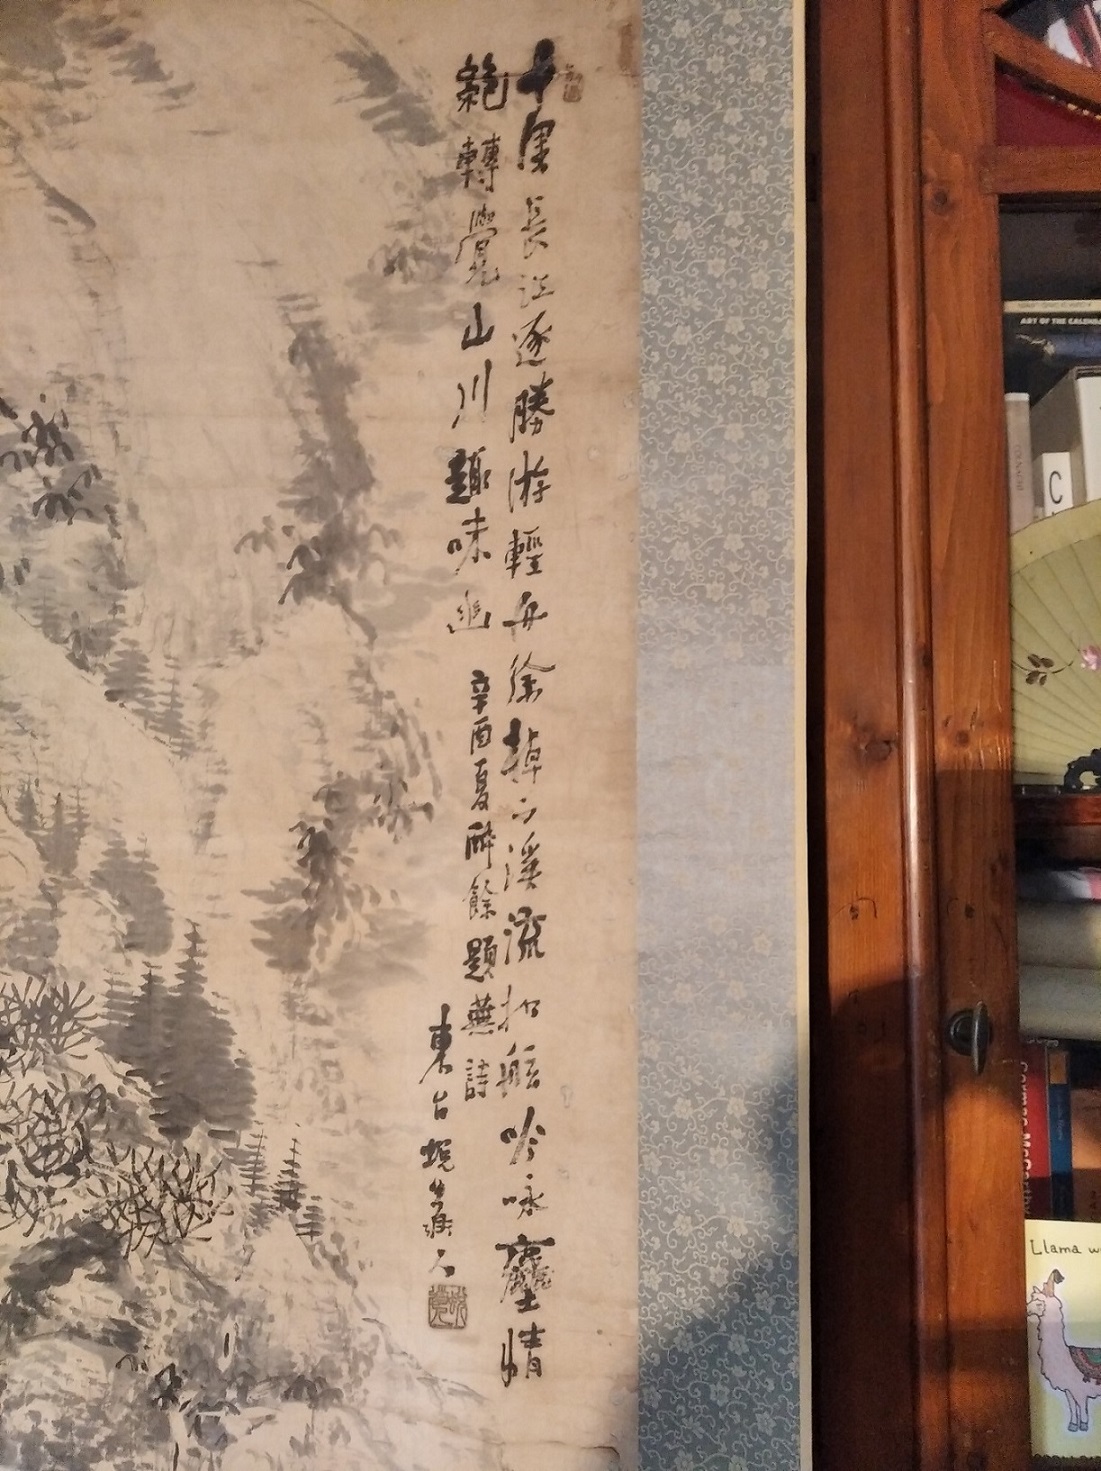 十里長江逐勝游輕舟徐棹下溪流扣舷吟咏塵情
絶轉覺山川趣味幽
辛酉夏酔餘題蕪詩
東台
ART OF THE CALENDAR
C
Cormac McCarthy
Llama w